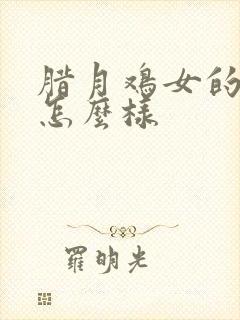 腊月鸡女的
怎麼樣
羅明光